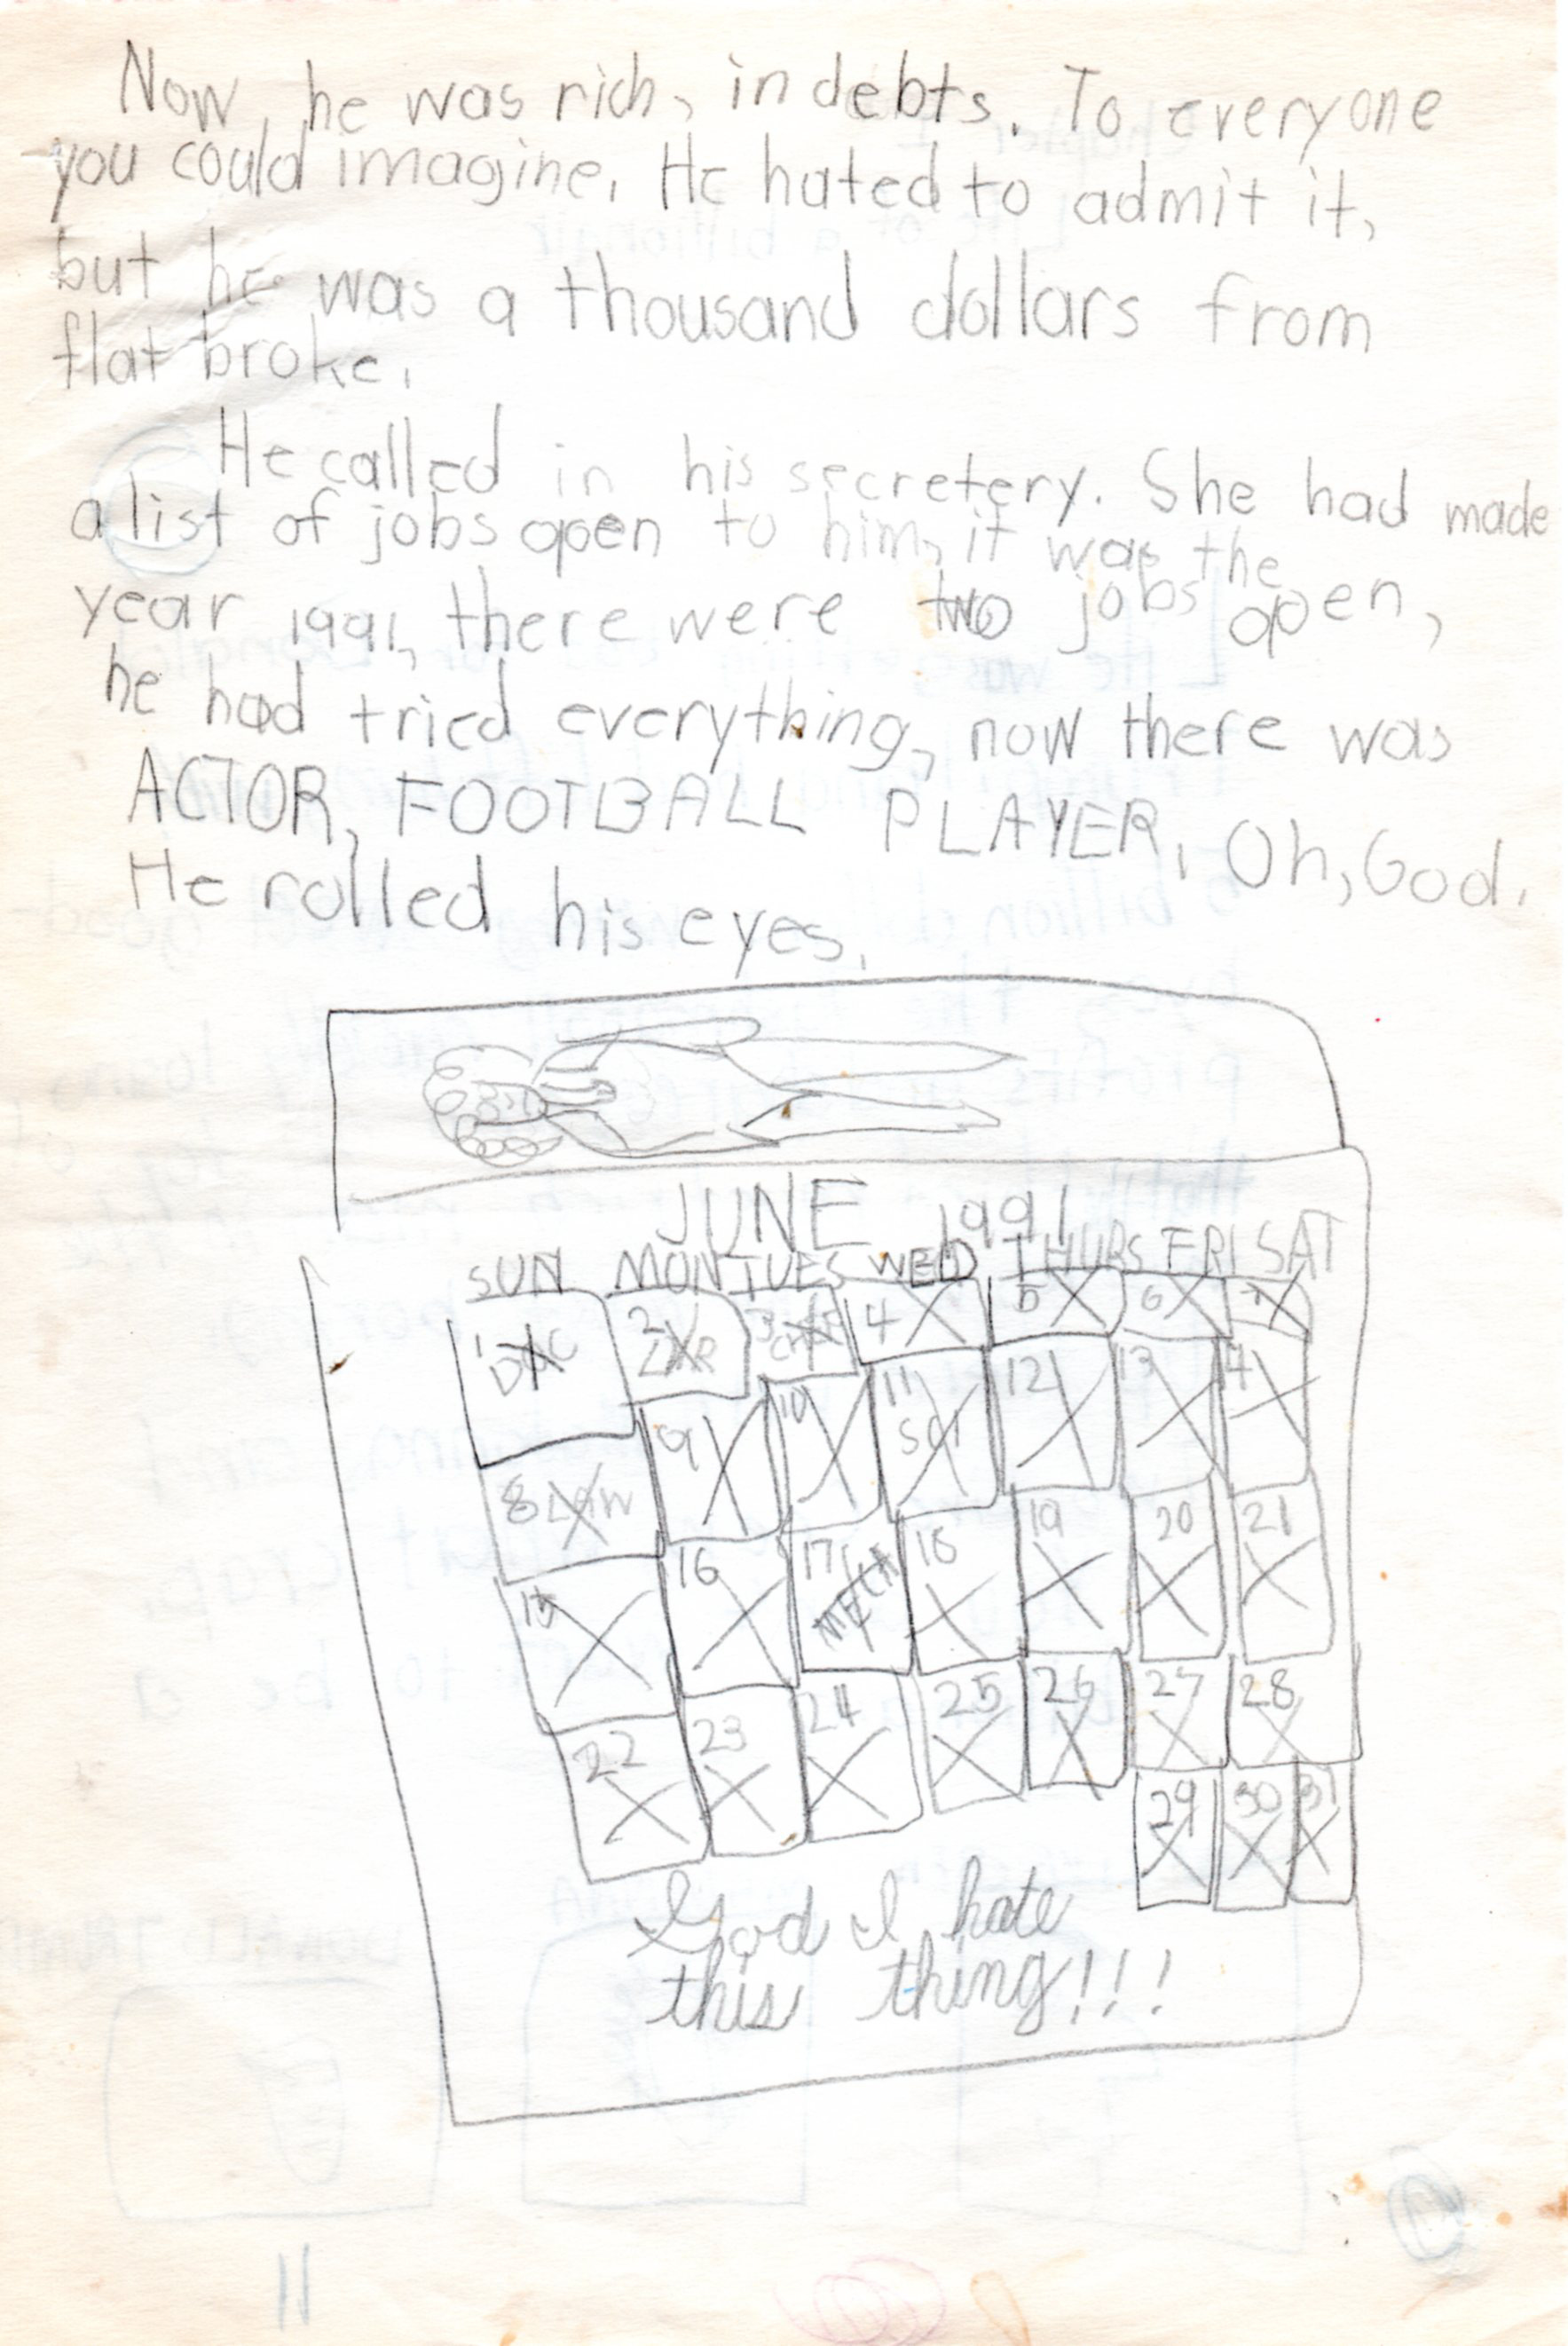 Now, he was rich, in debts. To everyone
you could imagine. He hated to admit it,
but he was a thousand dollars from
flat broke.
He called in his secretery. She had made
a list of jobs open to him, it was the
year 1991, there were two jobs open,
he had tried everything, now there was
ACTOR, FOOTBALL PLAYER, Oh, God.
He rolled his eyes.
JUNE 1991
SUN MON TUES WED THURS FRI SAT
1 2 3 4 5 6 7
DOC
8 LAW 9 10 11 12 13 14
SCI
15 16 17 18 19 20 21
MECH
22 23 24 25 26 27 28
29 30 31
God I hate
this thing!!!
11